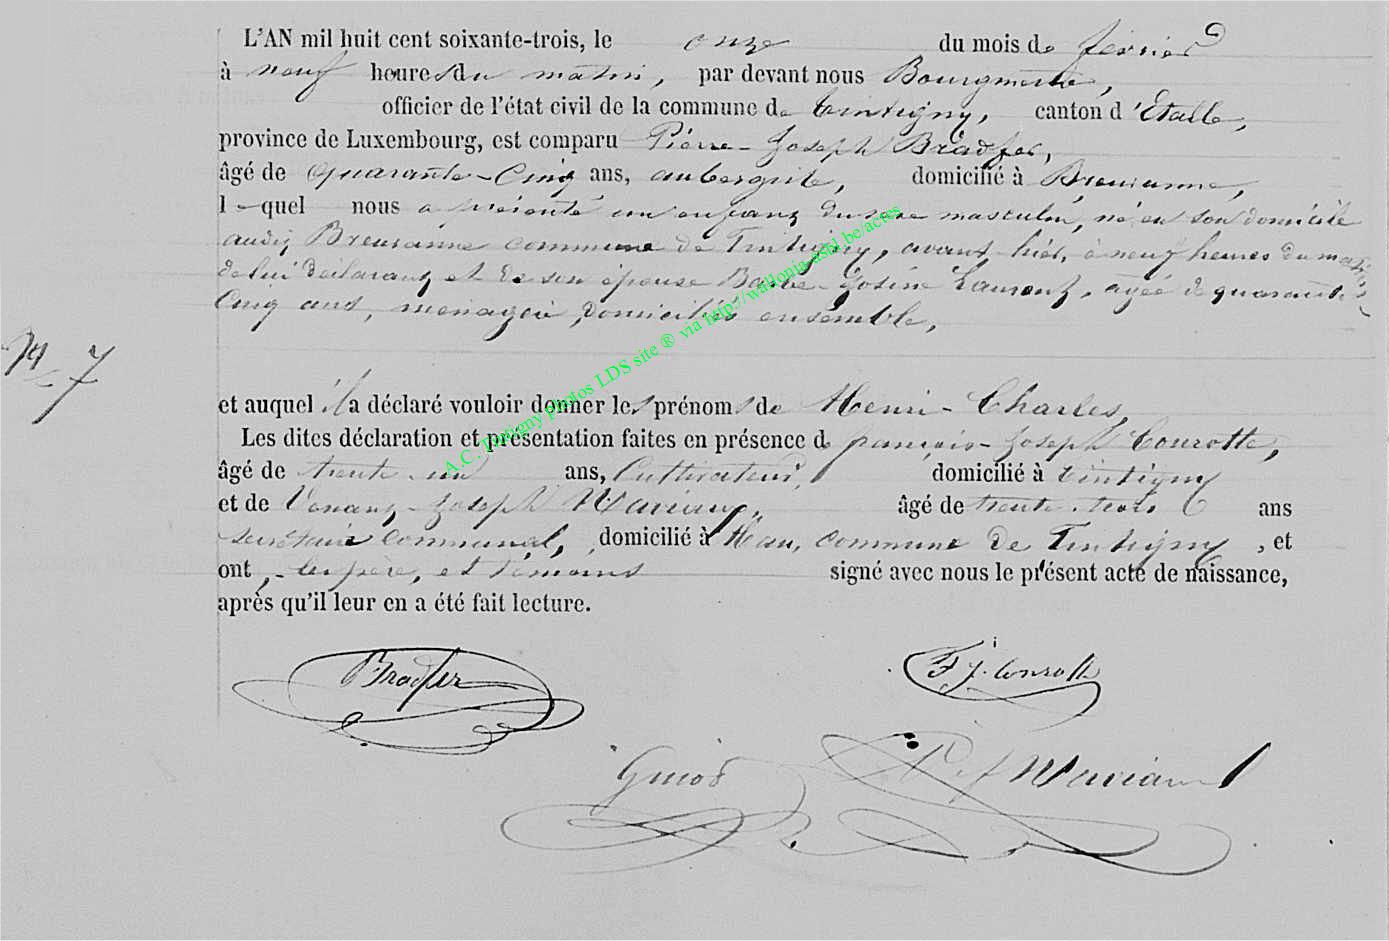 L'AN mil huit cent soixante-trois, le onze du mois de février
à neuf heures du matin, par devant nous Bourgmestre,
officier de l'état civil de la commune de Tintigny, canton d'Etalle,
province de Luxembourg, est comparu Pierre-Joseph Bradfer,
âgé de quarante-Cinq ans, aubergiste, domicilié à Breuvanne,
lequel nous a présenté un enfant du sexe masculin, né en son domicile
audit Breuvanne commune de Tintigny, avant hier, à neuf heures du matin
de lui déclarant et de son épouse Barbe-Josine Laurent, agée de quarante
Cinq ans, ménagère, domiciliés ensemble,
No 7
et auquel il a déclaré vouloir donner les prénoms de Henri-Charles,
Les dites déclaration et présentation faites en présence de françois-Joseph Conrotte,
âgé de trente-un ans, Cultivateur, domicilié à Tintigny
et de Venant-Joseph Maviaux, âgé de trente-trois ans
secrétaire Communal, domicilié à Han, commune de Tintigny, et
ont, les père, et témoins signé avec nous le présent acte de naissance,
après qu'il leur en a été fait lecture.
Bradfer F J. Conrotte
Guiot
A.C. Tintigny photos LDS site ® via http://wallonia-asbl.be/actes